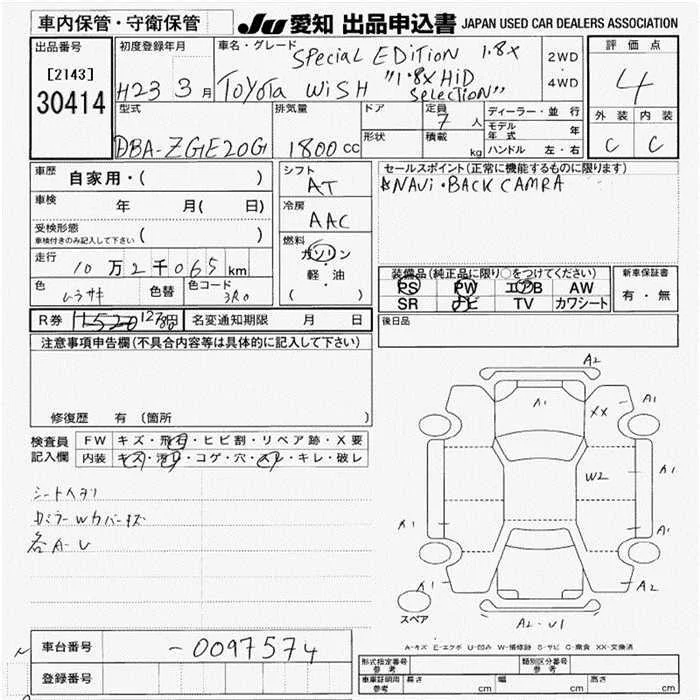 車内保管・守衛保管
JU 愛知 出品申込書 JAPAN USED CAR DEALERS ASSOCIATION
出品番号
[2143]
30414
初度登録年月
H23 3 月
車名・グレード
SPecial EDiTiON 1.8X
ToYoTa WiSH "1.8X HiD
SelecTioN"
2WD
・
4WD
評価点
4
外装 内装
C C
型式
DBA-ZGE20G
排気量
1800 CC
ドア
形状
定員
7 人
積載
kg
ディーラー・並行
モデル年式 年
ハンドル 左・右
車歴 自家用・( )
車検 年 月( 日)
受検形態
車検付きのみ記入して下さい ( )
走行 10 万 2 千 065 km
色 ムラサキ 色替 色コード 3R0
シフト
AT
冷房
AAC
燃料
ガソリン
・
軽・油
( )
セールスポイント(正常に機能するものに限ります)
NAVi・BACK CAMRA
装備品(純正品に限り○をつけてください)
PS PW エアB AW
SR ナビ TV カワシート
新車保証書
有・無
後日品
R券 12780円 名変通知期限 月 日
注意事項申告欄(不具合内容等は具体的に記入して下さい)
修復歴 有 (箇所
検査員
記入欄
FW キズ・飛石・ヒビ割・リペア跡・X要
内装 キズ・汚レ・コゲ・穴・スレ・キレ・破レ
シートヘタリ
各A-U
A2
A1
XX
A1
A1
W2
A1
A1
A1
A2
A2-U1
スペア
A-キズ E-エクボ U-凹み W-補修跡 S-サビ C-腐食 XX-交換済
車台番号 -0097574
登録番号
形式指定番号
参考
類別区分番号
参考
車庫証明用
参考
長さ cm 幅 cm 高さ cm